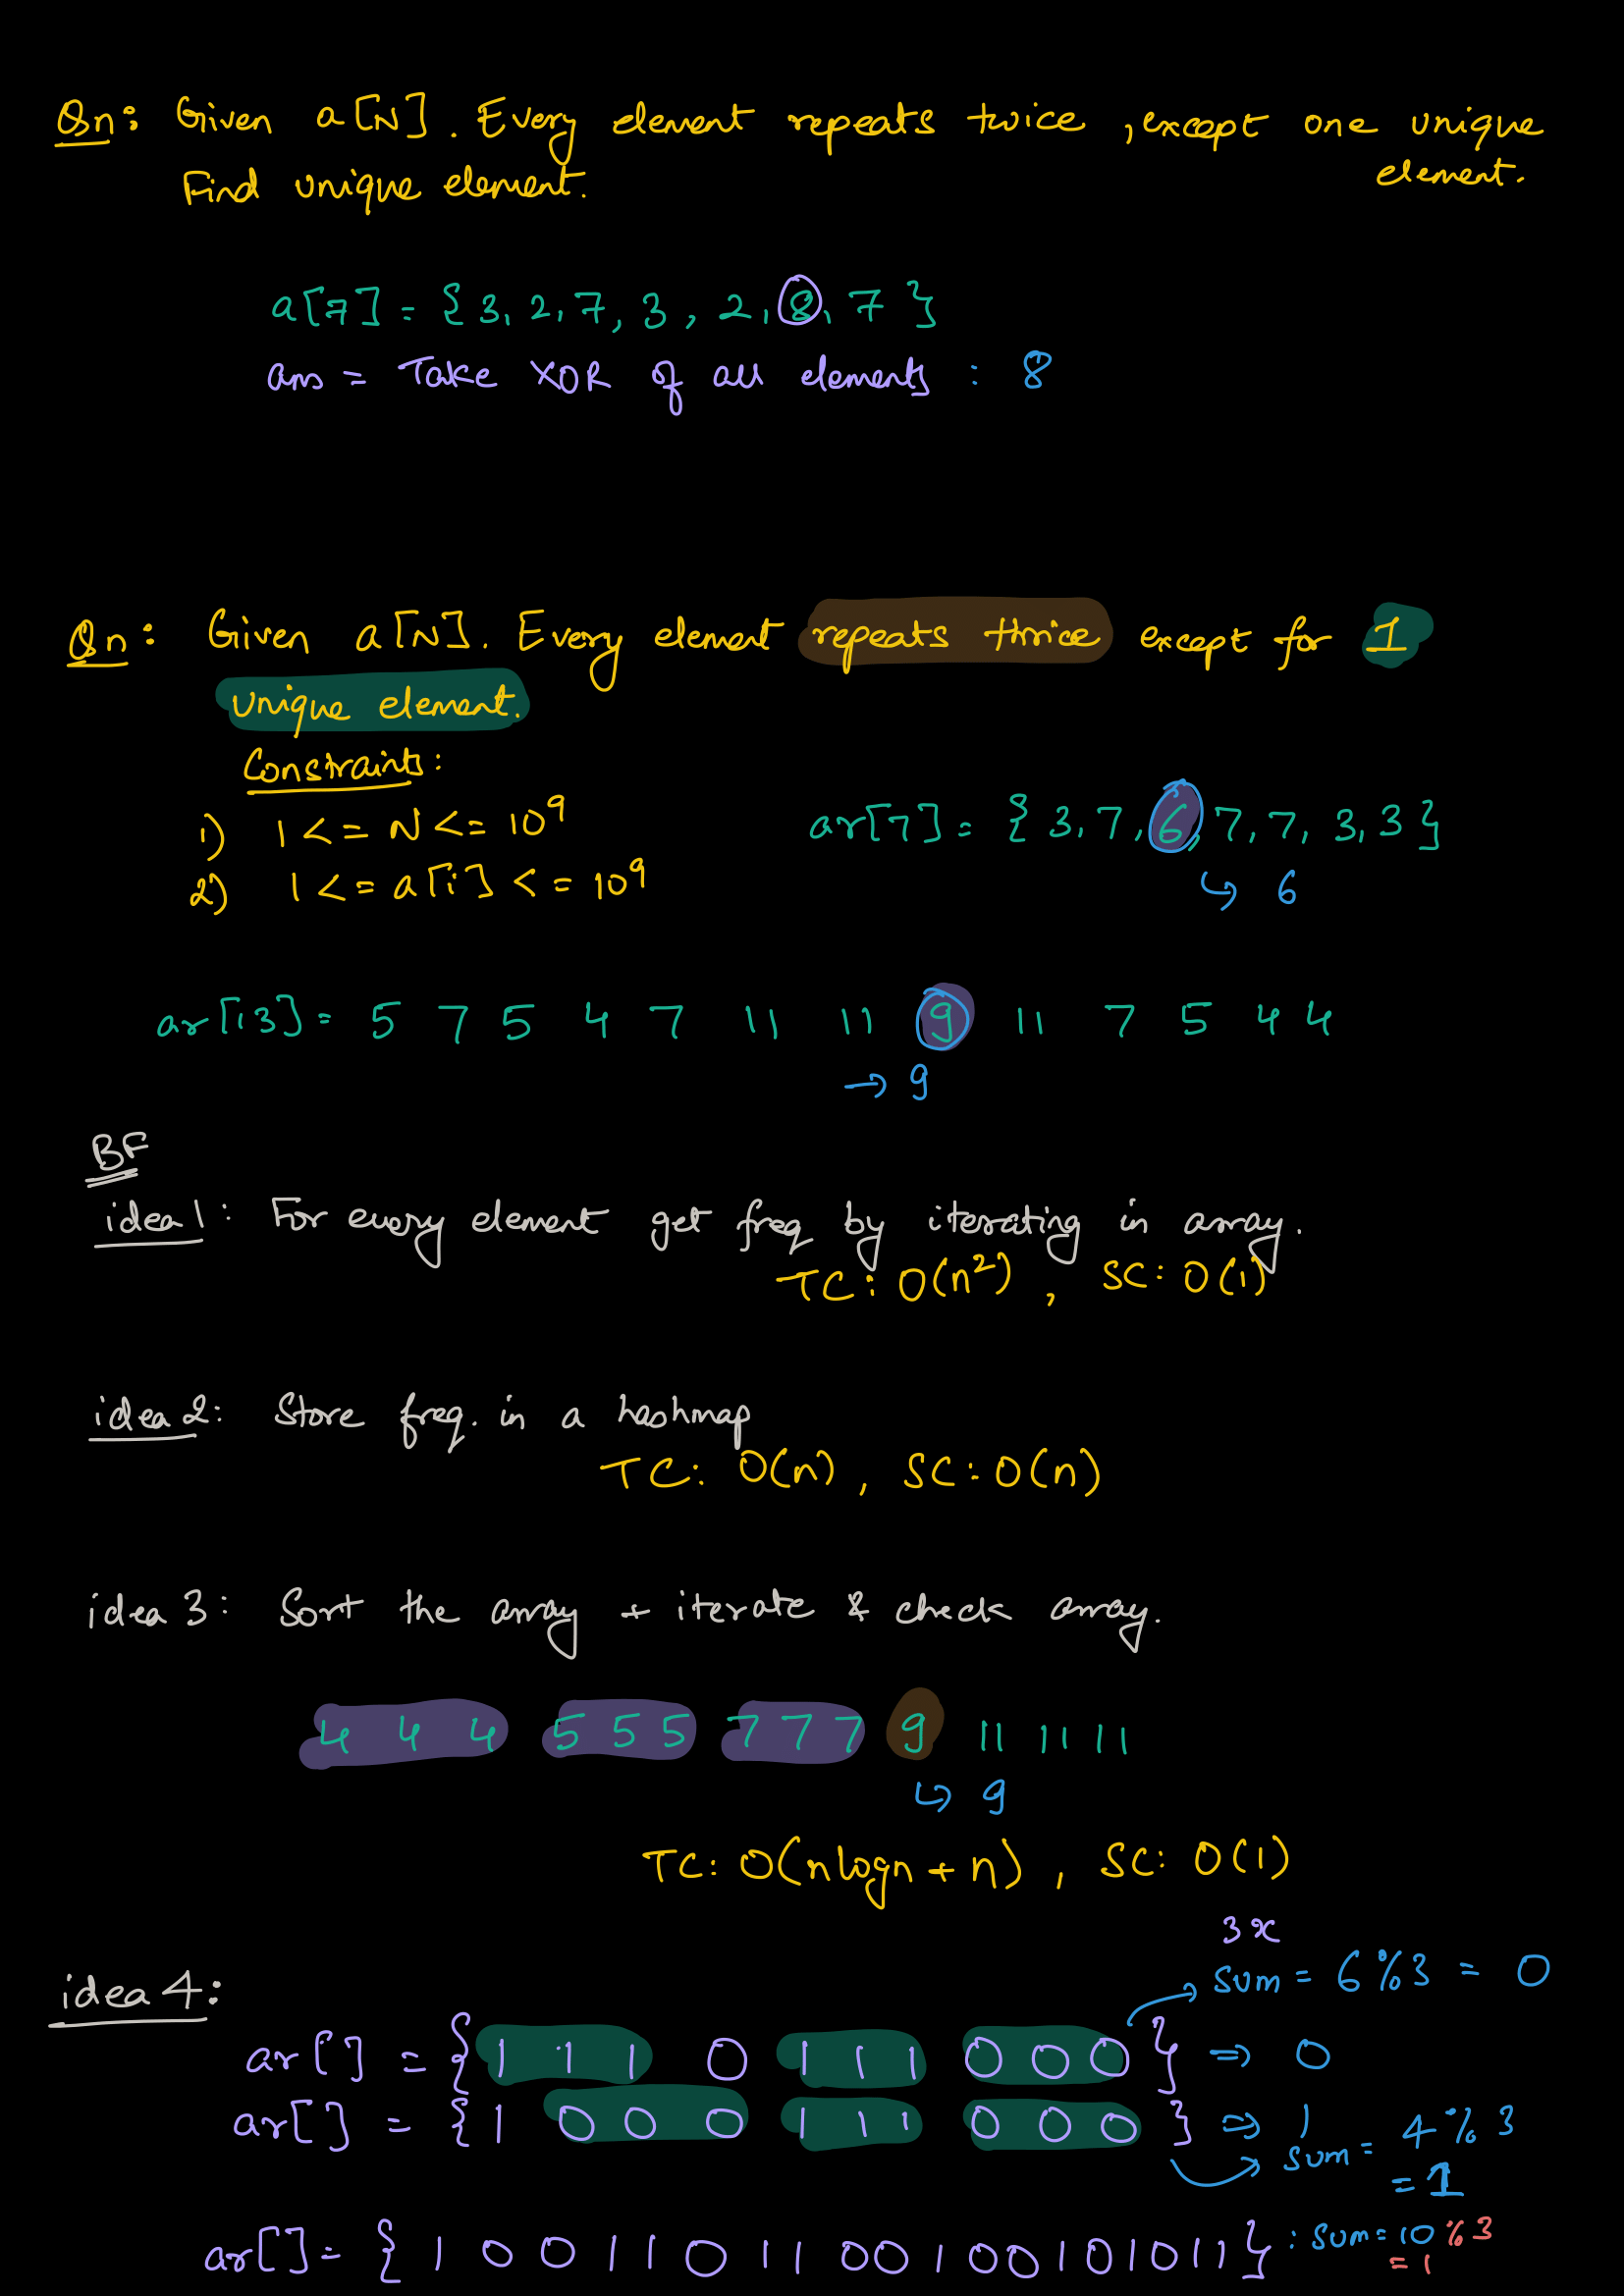 Qn: Given a[N]. Every element repeats twice, except one unique
element.
Find unique element.
a[7] = {3, 2, 7, 3, 2, 8, 7}
ans = Take XOR of all elements : 8
Qn: Given a[N]. Every element repeats thrice except for 1
unique element.
Constraints:
1) 1 <= N <= 10^9
2) 1 <= a[i] <= 10^9
ar[7] = {3, 7, 6, 7, 7, 3, 3}
↳ 6
ar[13] = 5 7 5 4 7 11 11 9 11 7 5 4 4
→ 9
BF
idea 1: For every element get freq by iterating in array.
TC: O(n^2), SC: O(1)
idea 2: Store freq. in a hashmap
TC: O(n), SC: O(n)
idea 3: Sort the array + iterate & check array.
4 4 4 5 5 5 7 7 7 9 11 11 11
↳ 9
TC: O(nlogn + n), SC: O(1)
3x
idea 4:
sum = 6 % 3 = 0
ar[] = {1 1 1 0 1 1 1 0 0 0} => 0
ar[] = {1 0 0 0 1 1 1 0 0 0} => 1
sum = 4 % 3
= 1
ar[] = {1 0 0 1 1 0 1 1 0 0 1 0 0 1 0 1 0 1 1} : sum = 10 % 3
= 1